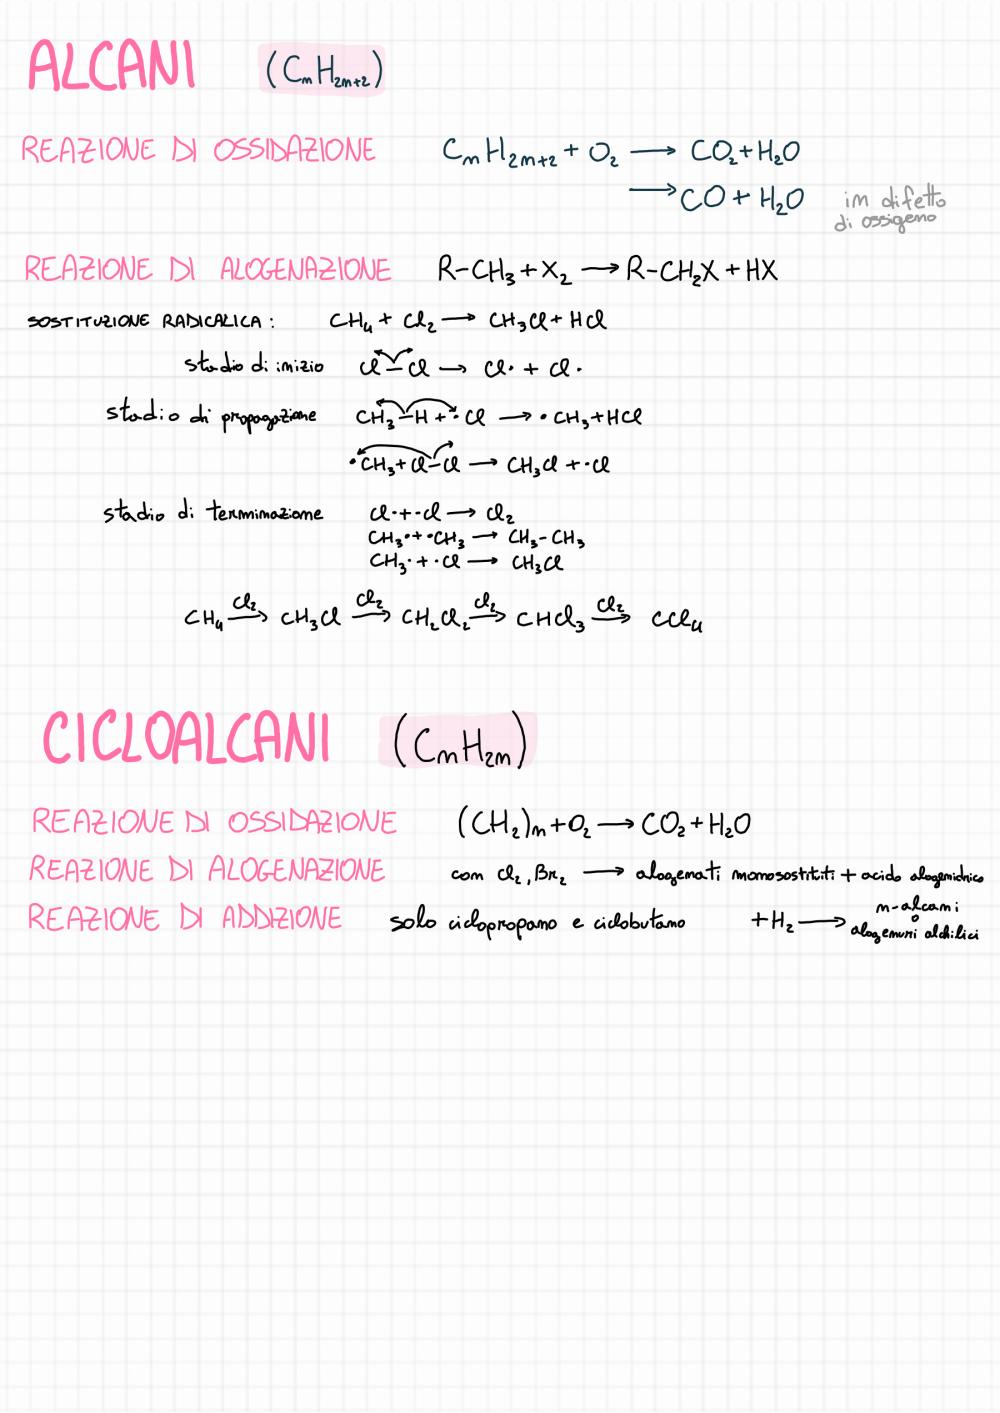 ALCANI (CnH2n+2)
REAZIONE DI OSSIDAZIONE CnH2n+2 + O2 → CO2 + H2O
→ CO + H2O in difetto di ossigeno
REAZIONE DI ALOGENAZIONE R-CH3 + X2 → R-CH2X + HX
SOSTITUZIONE RADICALICA: CH4 + Cl2 → CH3Cl + HCl
stadio di inizio Cl-Cl → Cl· + Cl·
stadio di propagazione CH3-H + ·Cl → ·CH3 + HCl
·CH3 + Cl-Cl → CH3Cl + ·Cl
stadio di terminazione Cl· + ·Cl → Cl2
CH3· + ·CH3 → CH3-CH3
CH3· + ·Cl → CH3Cl
CH4 Cl2→ CH3Cl Cl2→ CH2Cl2 Cl2→ CHCl3 Cl2→ CCl4
CICLOALCANI (CnH2n)
REAZIONE DI OSSIDAZIONE (CH2)n + O2 → CO2 + H2O
REAZIONE DI ALOGENAZIONE con Cl2, Br2 → alogenati monosostituti + acido alogenidrico
REAZIONE DI ADDIZIONE solo ciclopropano e ciclobutano + H2 → n-alcani o alogenuri alchilici